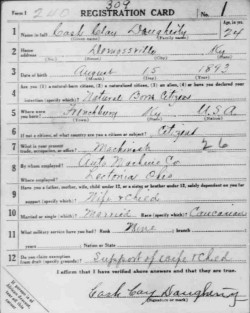 309
Form 1 240 REGISTRATION CARD No. 1
1 Name in full Cash Clay Daugherty Age, in yrs. 24
(Given name) (Family name)
2 Home address Ky
3 Date of birth August 15 1892
(Month) (Day) (Year)
4 Are you (1) a natural-born citizen, (2) a naturalized citizen, (3) an alien, (4) or have you declared your intention (specify which)? Natural Born Citizen
5 Where were you born? Frenchburg Ky U.S.A
(Town) (State) (Nation)
6 If not a citizen, of what country are you a citizen or subject? Citizen
7 What is your present trade, occupation, or office? Machinist 26
8 By whom employed? Auto Machine Co
Where employed? Leetonia Ohio
9 Have you a father, mother, wife, child under 12, or a sister or brother under 12, solely dependent on you for support (specify which)? Wife & Child
10 Married or single (which)? Married Race (specify which)? Caucasian
11 What military service have you had? Rank None; branch
years; Nation or State
12 Do you claim exemption from draft (specify grounds)? Support of wife & Child
I affirm that I have verified above answers and that they are true.
Cash Cay Daugherty
(Signature or mark)